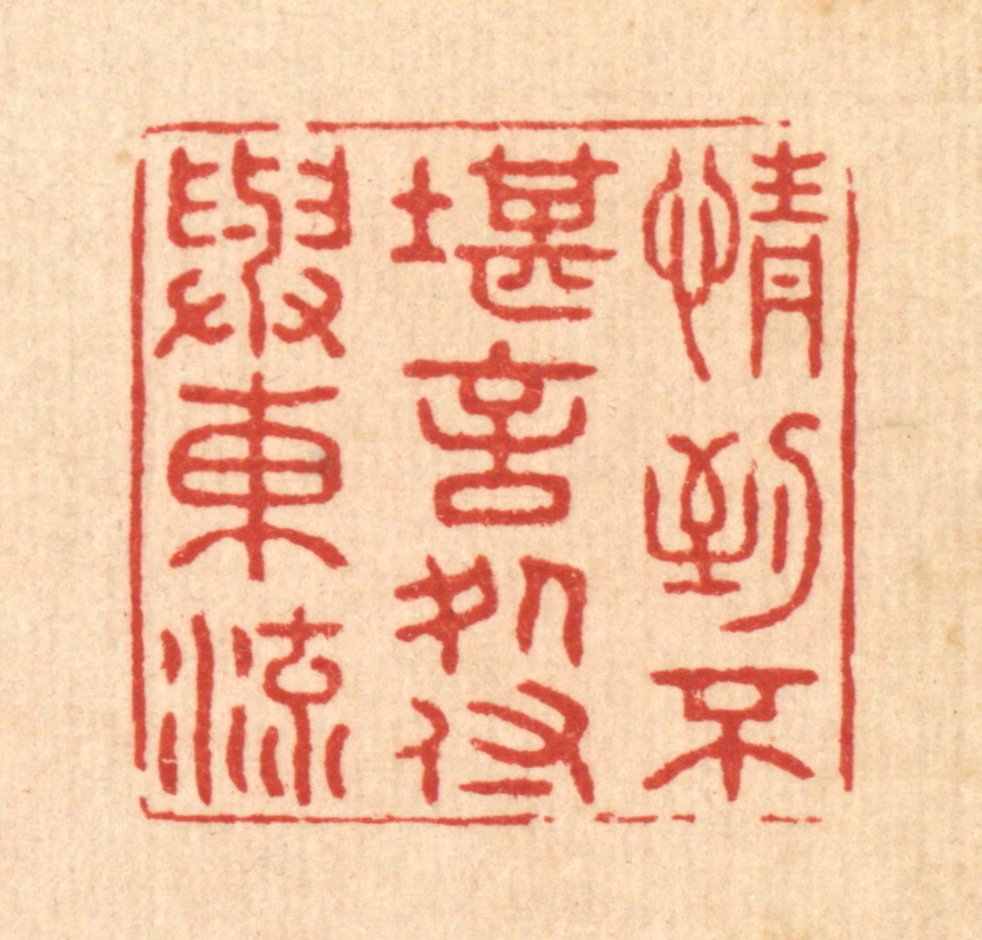 情到不
堪言処付
與東流